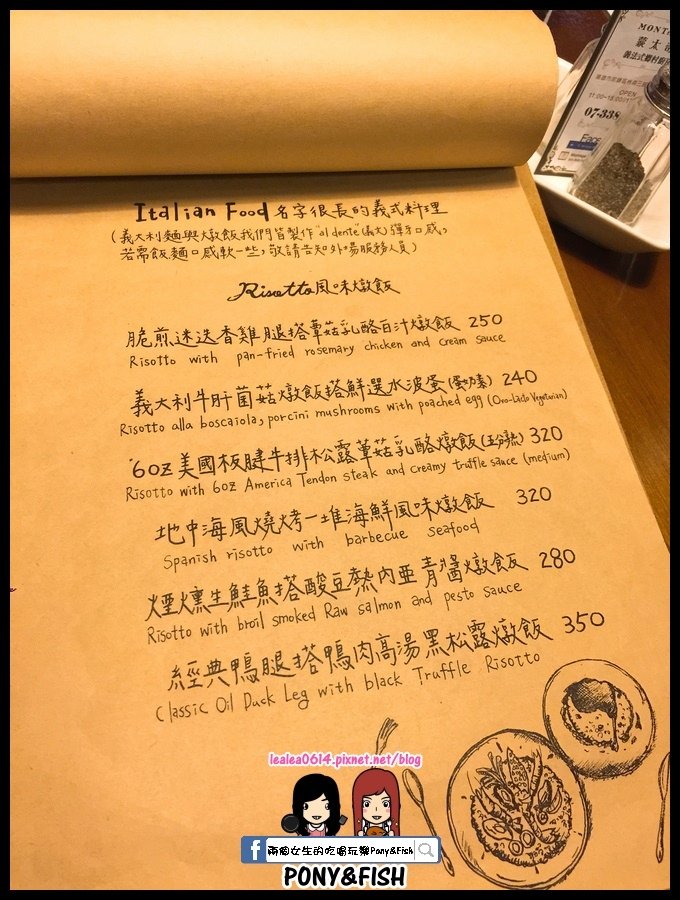 MONT
蒙太
07-338
OPEN
Italian Food 名字很長的義式料理
(義大利麵與燉飯我們皆製作"al dente"(義文)彈牙口感,
若需飯麵口感軟一些,敬請告知外場服務人員)
Risotto風味燉飯
脆煎迷迭香雞腿搭蕈菇乳酪白汁燉飯 250
Risotto with pan-fried rosemary chicken and cream sauce
義大利牛肝菌菇燉飯搭鮮選水波蛋(蛋奶素) 240
Risotto alla boscaiola, porcini mushrooms with poached egg (Ovo-lacto Vegetarian)
"6oz美國板腱牛排松露蕈菇乳酪燉飯(五分熟) 320
Risotto with 6oz America Tendon steak and creamy truffle sauce (medium)
地中海風燒烤一堆海鮮風味燉飯 320
Spanish risotto with barbecue seafood
煙燻生鮭魚搭酸豆熱內亞青醬燉飯 280
Risotto with broil smoked Raw salmon and pesto sauce
經典鴨腿搭鴨肉高湯黑松露燉飯 350
Classic Oil Duck Leg with black Truffle Risotto
lealea0614.pixnet.net/blog
f 兩個女生的吃喝玩樂Pony&Fish
PONY&FISH